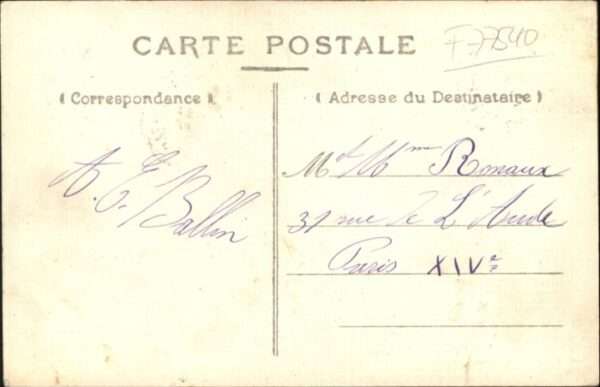 CARTE POSTALE
F-77540
( Correspondance )
( Adresse du Destinataire )
A. E. Ballin
Mr & Mme Ronaux
31 rue de L'Aude
Paris XIVe